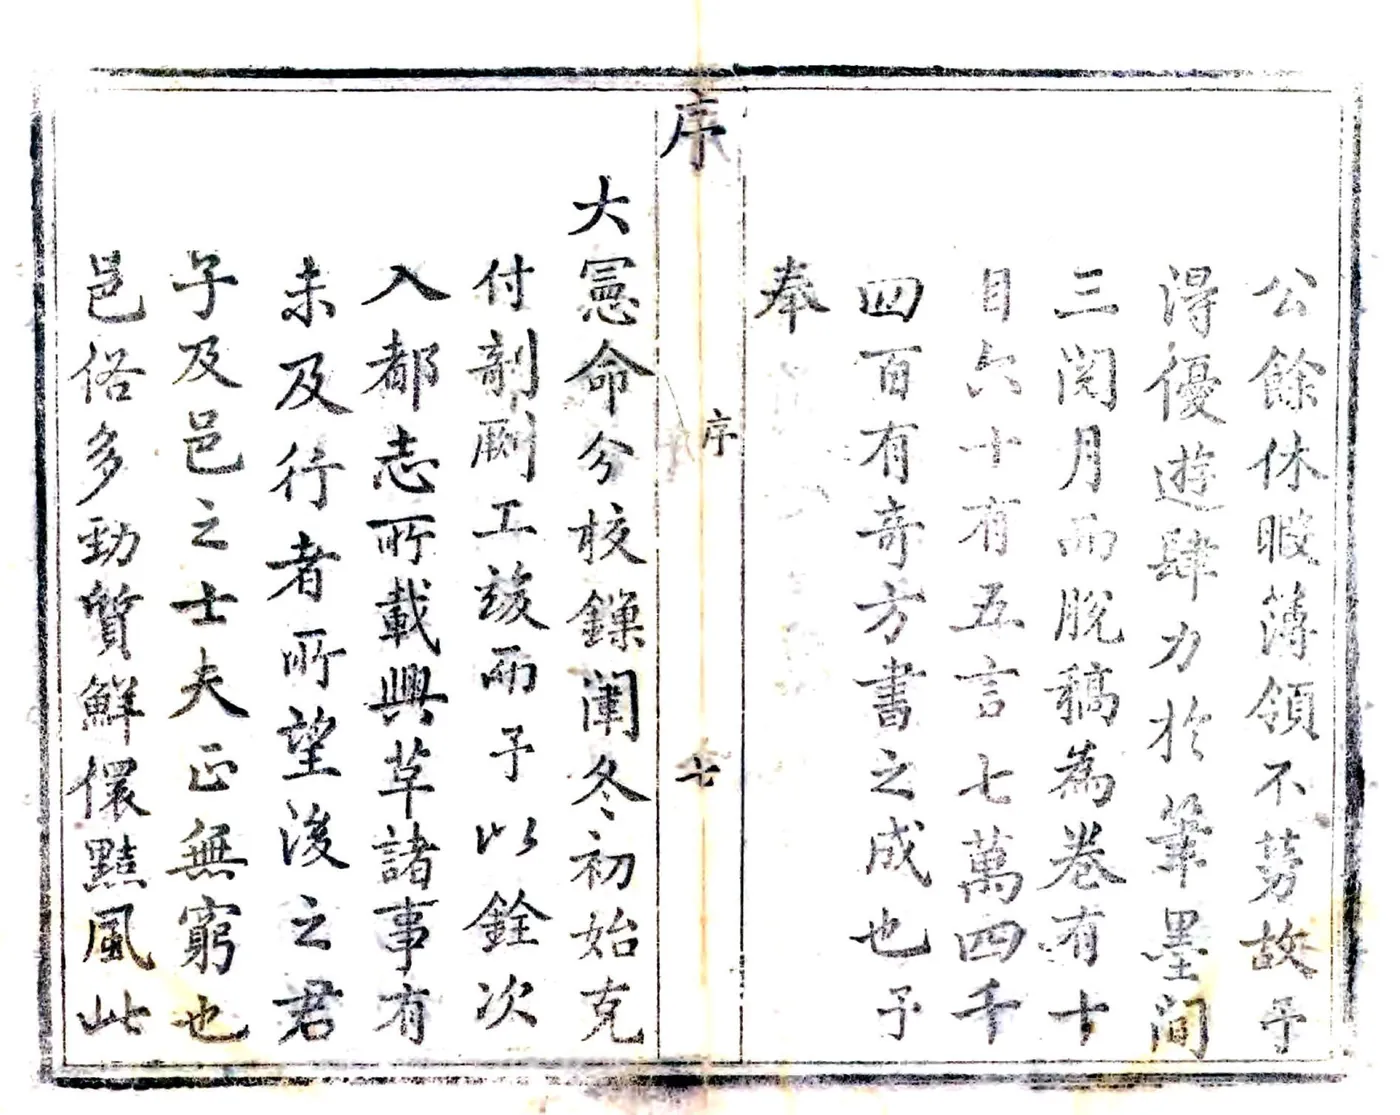 公餘休暇薄領不勞故予
得優遊肆力於筆墨間
三閱月而脫稿為卷有十
目六十有五言七萬四千
四百有奇方書之成也予
奉
序
序
七
大憲命分校鎌闈冬初始克
付剞劂工竣而予以銓次
入都志所載興革諸事有
未及行者所望後之君
子及邑之士夫正無窮也
邑俗多勁質鮮儇黠風此